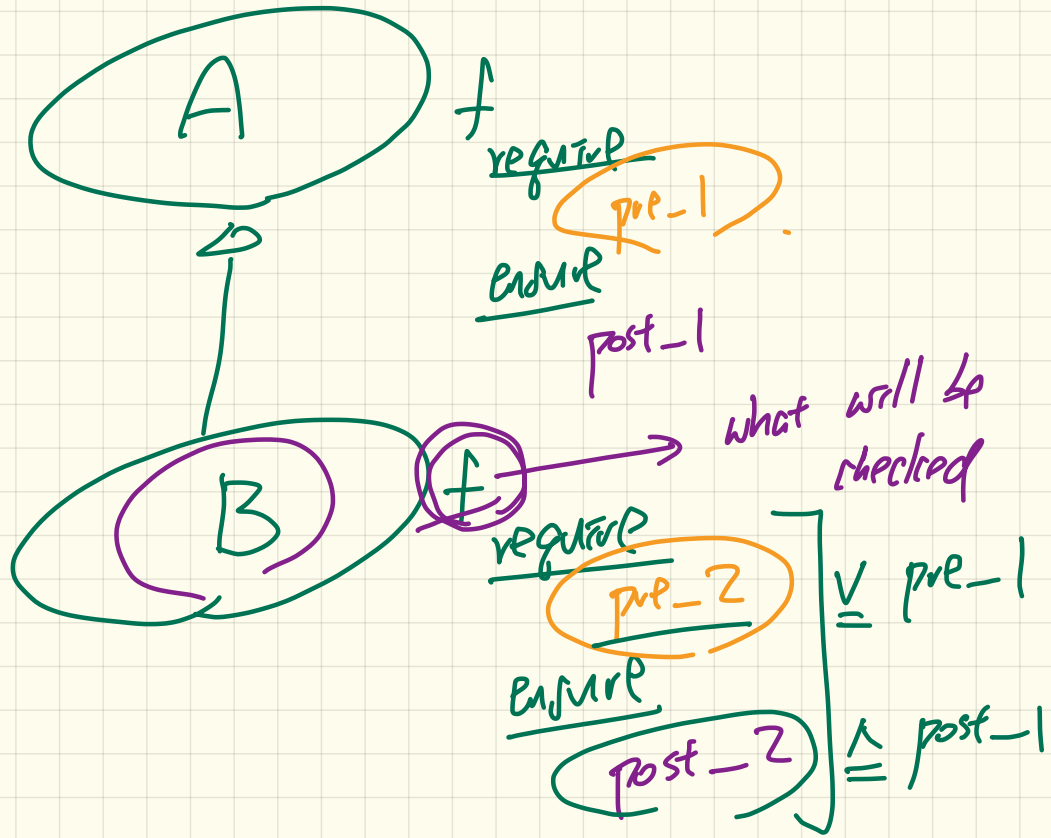 A
f
require
pre_1
ensure
post_1
what will be
checked
B
f
require
pre_2
∨ pre_1
ensure
post_2
∧ post_1